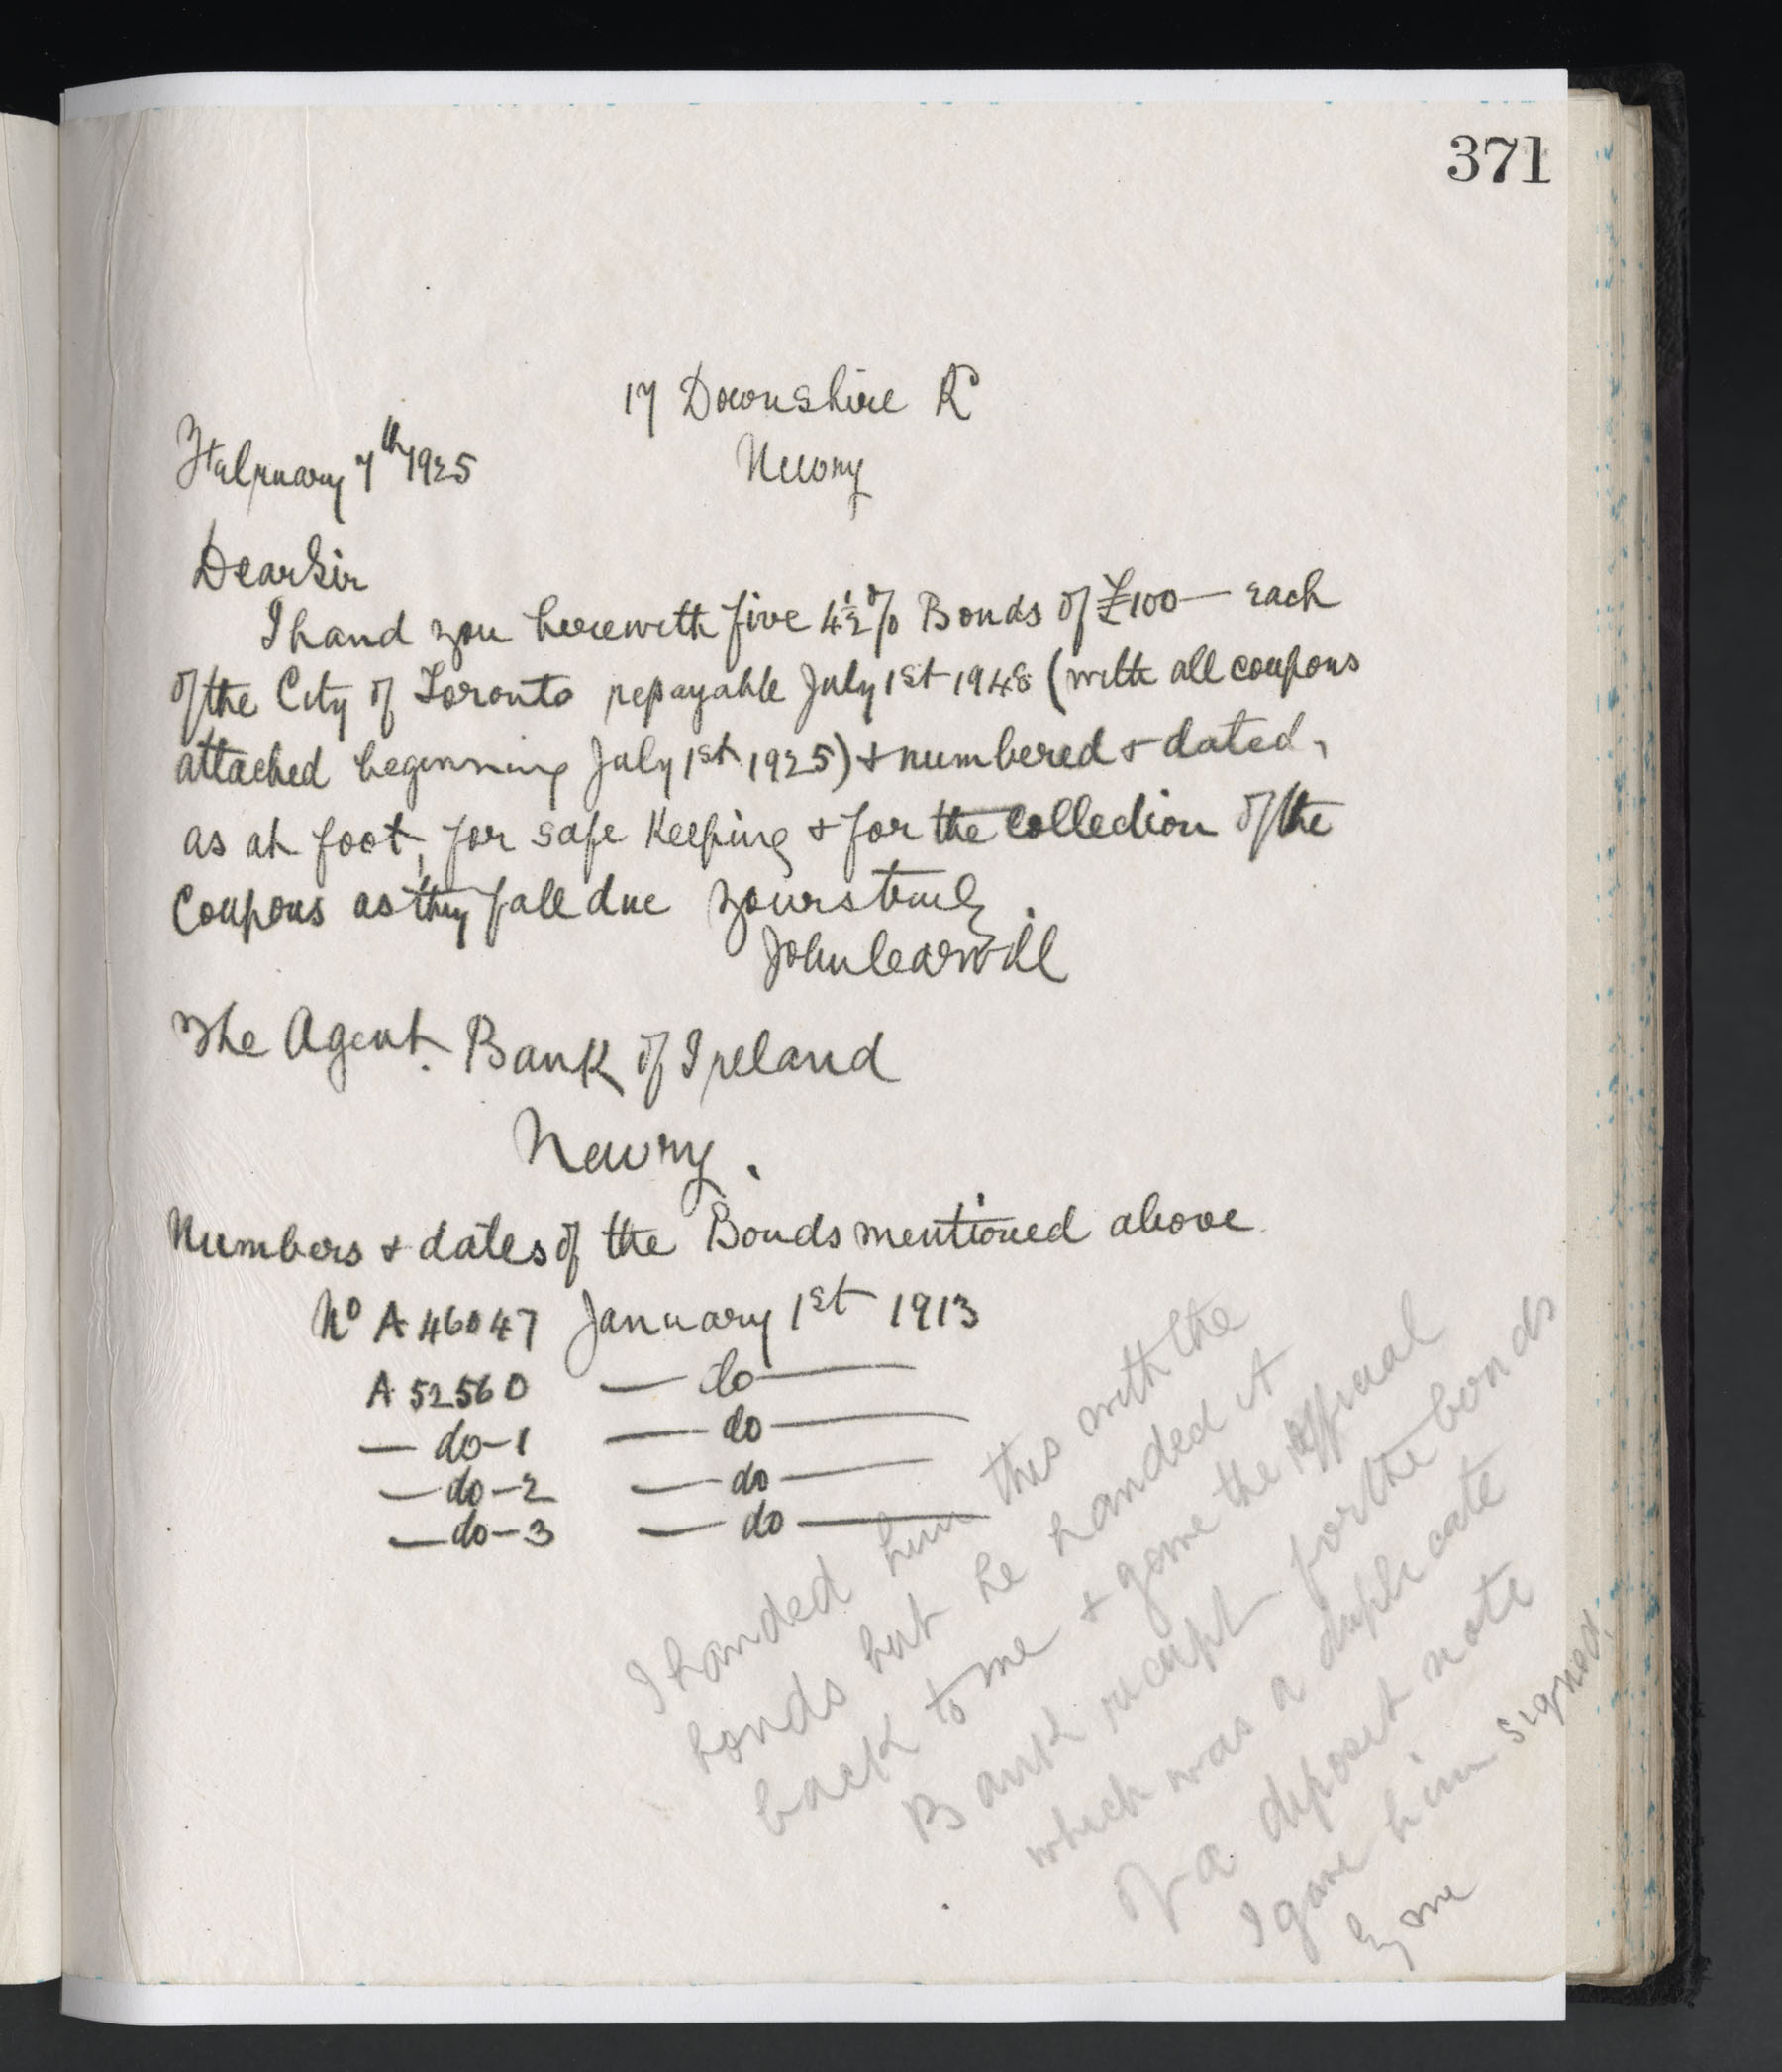 371
17 Downshire Rd
Newry
February 7th 1925
Dear Sir
I hand you herewith five 4½% Bonds of £100— each
of the City of Toronto repayable July 1st 1948 (with all coupons
attached beginning July 1st 1925) & numbered & dated,
as at foot, for safe keeping & for the collection of the
Coupons as they fall due yours truly
John Carvill
The Agent. Bank of Ireland
Newry.
Numbers & dates of the Bonds mentioned above
No A 46047 January 1st 1913
A 52560 — do —
— do — 1 — do —
— do — 2 — do —
— do — 3 — do —
I handed him this with the
bonds but he handed it
back to me & gave the official
Bank receipt for the bonds
which was a duplicate
of a deposit note
I gave him signed.
by me